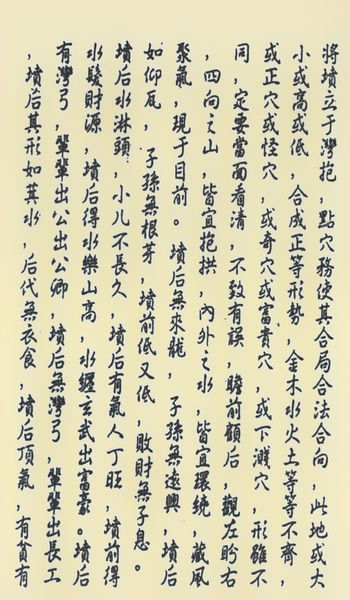 將墳立于灣抱，點穴務使其合局合法合向，此地或大
小或高或低，合成正等形勢，金木水火土等等不齊，
或正穴或怪穴，或奇穴或富貴穴，或下濺穴，形雖不
同，定要當面看清，不致有誤，瞻前顧后，觀左盼右
，四向之山，皆宜抱拱，內外之水，皆宜環繞，藏風
聚氣，現于目前。墳后無來龍，子孫無遠興，墳后
如仰瓦，子孫無根芽，墳前低又低，敗財無子息。
墳后水淋頭，小儿不長久，墳后有氣人丁旺，墳前得
水發財源，墳后得水樂山高，水纏玄武出富豪。墳后
有灣弓，輩輩出公出公卿，墳后無灣弓，輩輩出長工
，墳后其形如其水，后代無衣食，墳后頂氣，有貧有